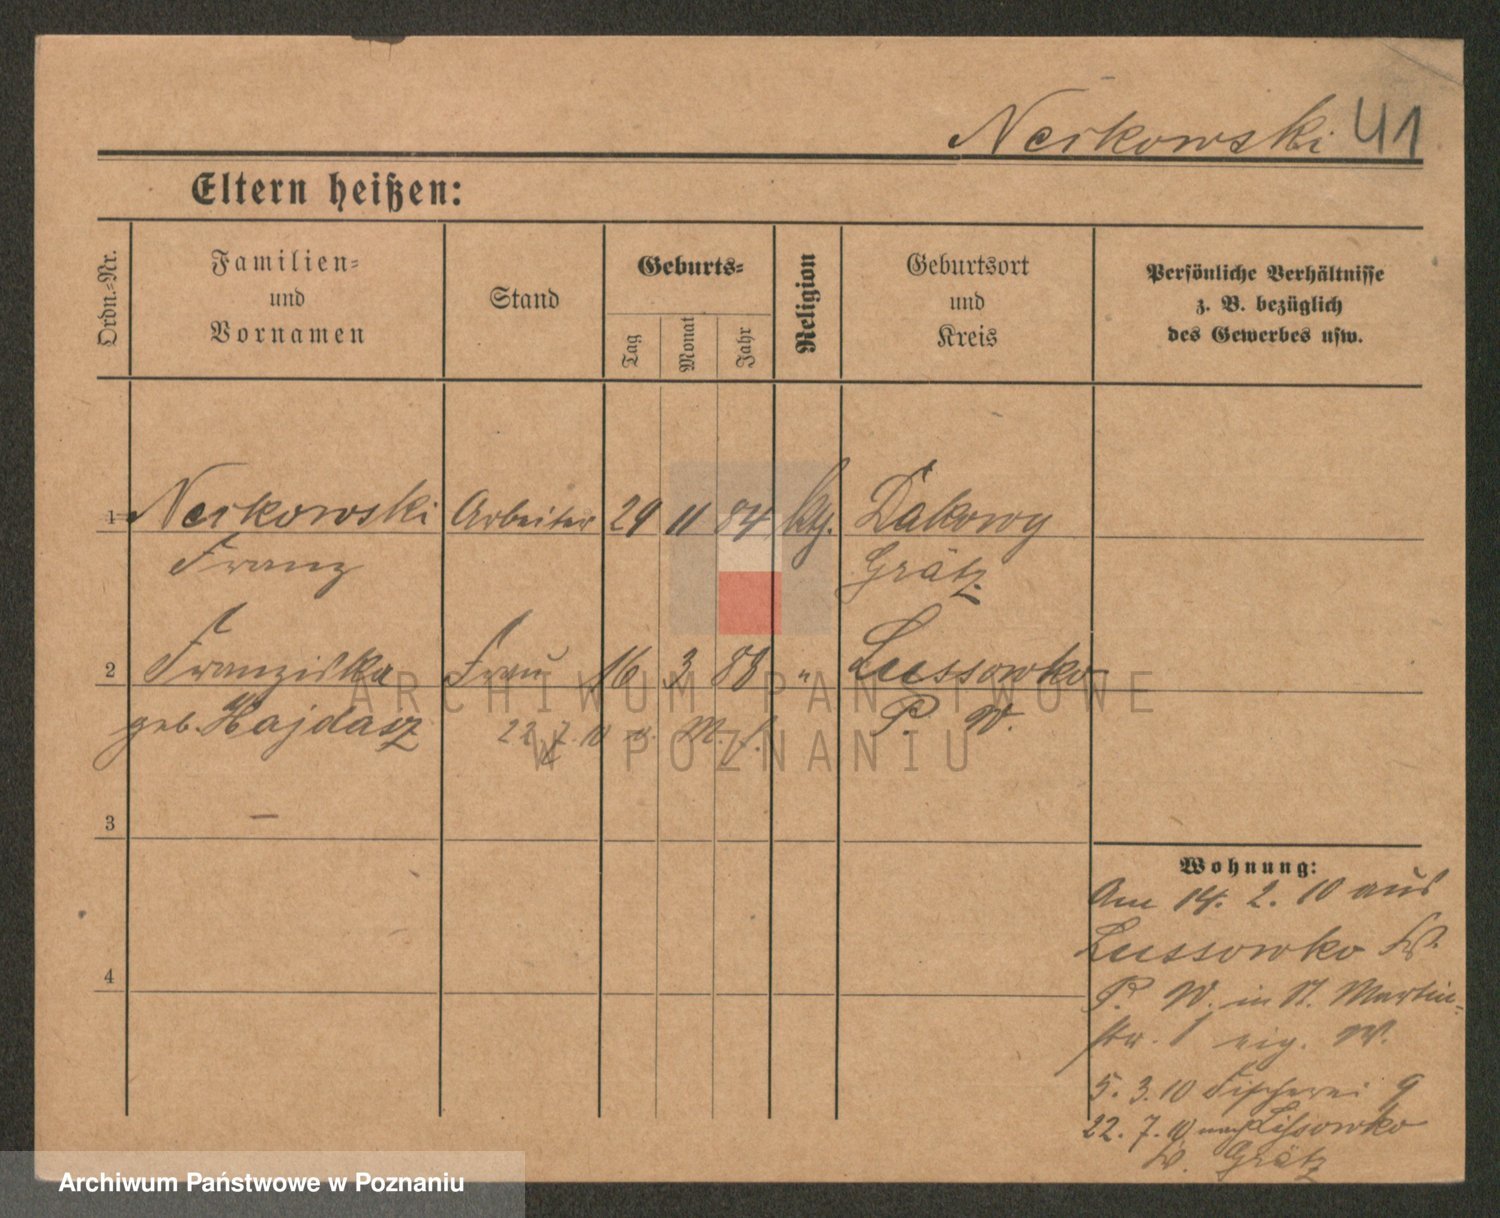 Nerkowski 41
Eltern heißen:
Ordn.-Nr.
Familien-
und
Vornamen
Stand
Geburts-
Tag
Monat
Jahr
Religion
Geburtsort
und
Kreis
Persönliche Verhältnisse
z. B. bezüglich
des Gewerbes usw.
1 Nerkowski Arbeiter 29 11 84 kth. Dakowy
Franz Grätz
2 Franziska Frau 16 3 88 " Lussowko
geb. Hajdasz 22.7.10 P. W.
3 —
4
Wohnung:
Am 14. 2. 10 aus
Lussowko
P. W. in St. Martin-
str. 1 eig. W.
5. 3. 10 Fischerei 9
22. 7. 10 nach Lissowko
Grätz
ARCHIWUM PAŃSTWOWE
W POZNANIU
Archiwum Państwowe w Poznaniu